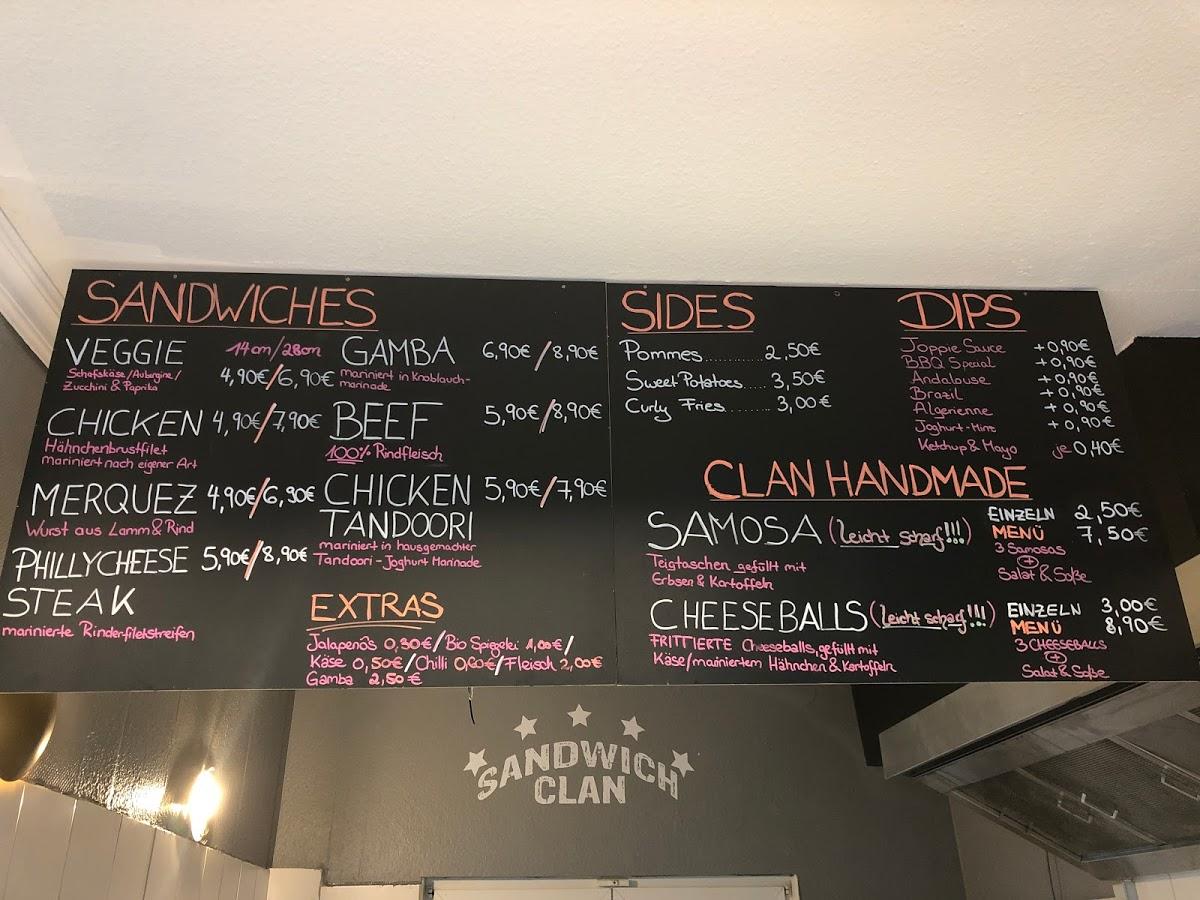 SANDWICHES
VEGGIE 14cm/28cm
Schafskäse/Aubergine/ 4,90€/6,90€
Zucchini & Paprika
CHICKEN 4,90€/7,90€
Hähnchenbrustfilet
mariniert nach eigener Art
MERQUEZ 4,90€/6,90€
Wurst aus Lamm & Rind
PHILLYCHEESE 5,90€/8,90€
STEAK
marinierte Rinderfiletstreifen
GAMBA 6,90€/8,90€
mariniert in Knoblauch-
marinade
BEEF 5,90€/8,90€
100% Rindfleisch
CHICKEN 5,90€/7,90€
TANDOORI
mariniert in hausgemachter
Tandoori-Joghurt Marinade
EXTRAS
Jalapenõs 0,30€/Bio Spiegelei 1,00€/
Käse 0,50€/Chilli 0,60€/Fleisch 2,00€
Gamba 2,50€
SIDES
Pommes..........2,50€
Sweet Potatoes.....3,50€
Curly Fries........3,00€
DIPS
Joppie Sauce +0,90€
BBQ Special +0,90€
Andalouse +0,90€
Brazil +0,90€
Algerienne +0,90€
Joghurt-Minze +0,90€
Ketchup & Mayo je 0,40€
CLAN HANDMADE
SAMOSA (leicht scharf!!!) EINZELN 2,50€
MENÜ 7,50€
3 Samosas
+
Salat & Soße
Teigtaschen gefüllt mit
Erbsen & Kartoffeln
CHEESEBALLS (leicht scharf!!!) EINZELN 3,00€
MENÜ 8,90€
3 CHEESEBALLS
+
Salat & Soße
FRITTIERTE Cheeseballs, gefüllt mit
Käse/mariniertem Hähnchen & Kartoffeln
SANDWICH
CLAN